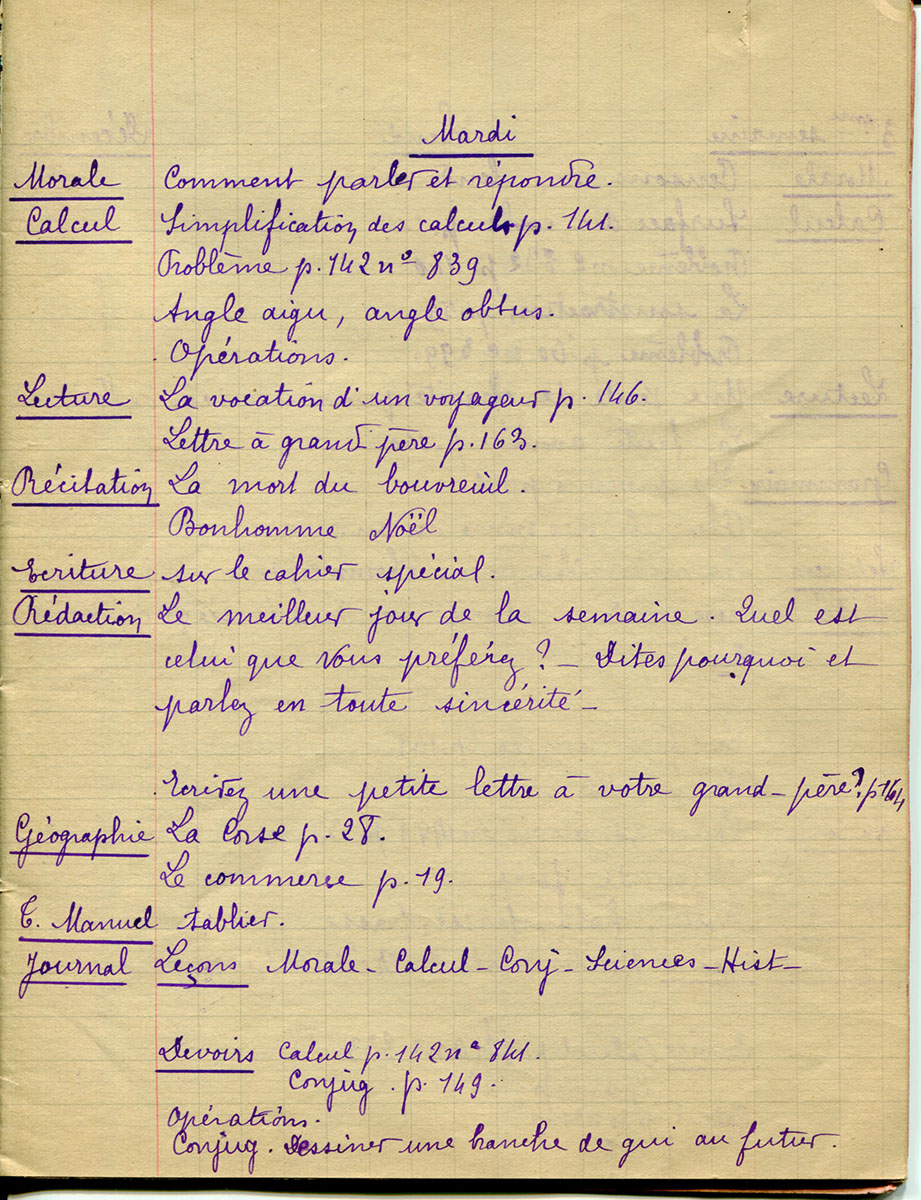 Mardi
Morale Comment parler et répondre.
Calcul Simplification des calculs p. 141.
Problème p. 142 n° 839
Angle aigu, angle obtus.
Opérations.
Lecture La vocation d'un voyageur p. 146.
Lettre à grand père p. 163.
Récitation La mort du bouvreuil.
Bonhomme Noël
Ecriture sur le cahier spécial.
Rédaction Le meilleur jour de la semaine. Quel est
celui que vous préférez ? – Dites pourquoi et
parlez en toute sincérité –
Ecrivez une petite lettre à votre grand-père ? p 164
Géographie La Corse p. 28.
Le commerce p. 19.
T. Manuel tablier.
Journal Leçons Morale – Calcul – Conj – Sciences – Hist –
Devoirs Calcul p. 142 n° 841.
Conjug. p. 149.
Opérations.
Conjug. Dessiner une branche de gui au futur.